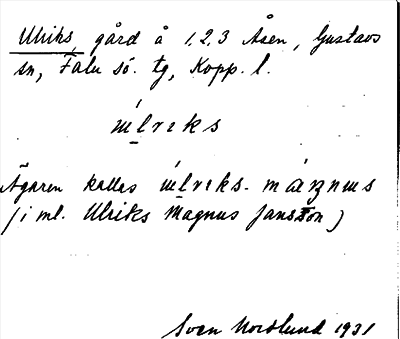 Ulriks, gård å 1, 2, 3 Åsen, Gustavs
sn, Falu sö. tg, Kopp. l.
ɯ́lrɩks
Ägaren kallas ɯ́lrɩks. máŋnɯs
(i ml. Ulriks Magnus Jansson)
Sven Nordlund 1931